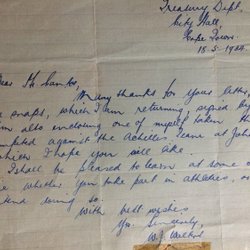 Treasury Dept.
City Hall,
Cape Town.
15.5.1924.
Dear
Many thanks for your letter,
snaps, which I am returning, signed by
am also enclosing one of myself taken
competed against the Achilles Team at Joh
which I hope you will like.
I shall be pleased to learn at some
whether you take part in athletics, or
With best wishes
Yrs. Sincerely,